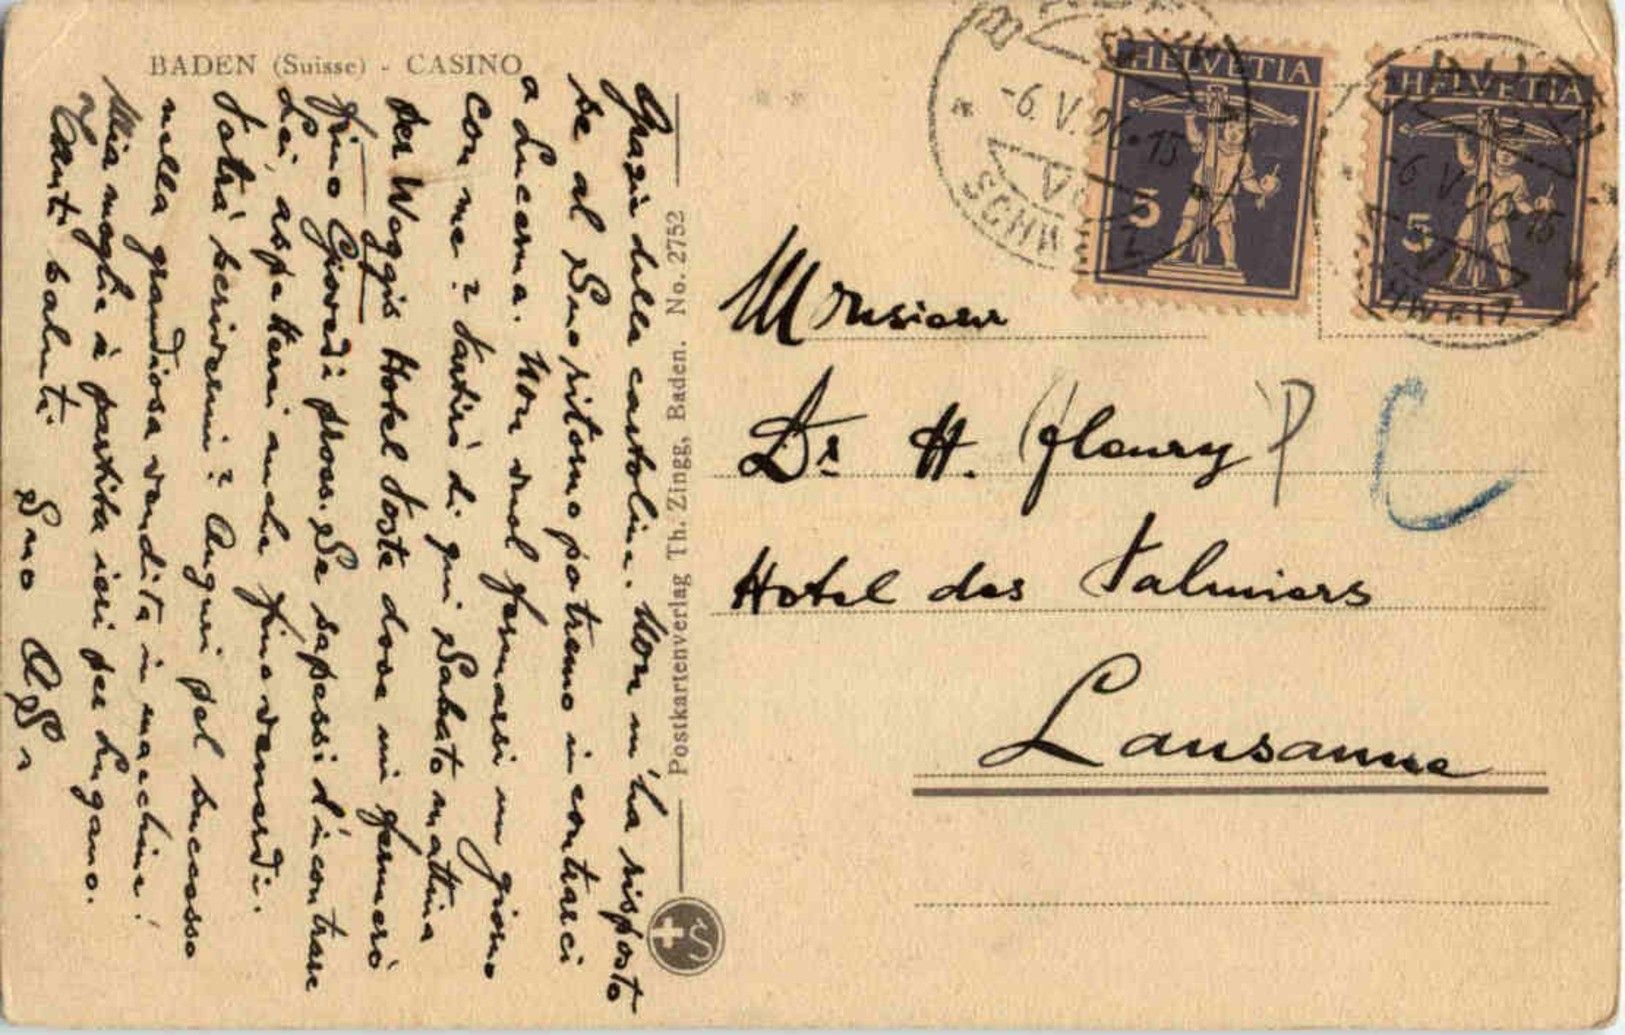 BADEN (Suisse) - CASINO
Grazie della cartolina. Non m'ha risposto
se al Suo ritorno potremo incontrarci
a Lucerna. Non vuol fermarsi un giorno
con me? Partirò di qui Sabato mattina
per Weggis Hotel Poste dove mi fermerò
fino Giovedì pross. Se sapessi d'incontrare
Lei, aspetterei anche fino venerdì.
Potrà scrivermi? Auguri pel successo
nella grandiosa vendita in macchine!
Mia moglie è partita ieri per Lugano.
Tanti saluti
Suo
Postkartenverlag Th. Zingg, Baden. No. 2752
S
HELVETIA
5
HELVETIA
5
-6.V.26-15
-6.V.26-15
Monsieur
Dr H. Fleury
Hotel des Palmiers
Lausanne